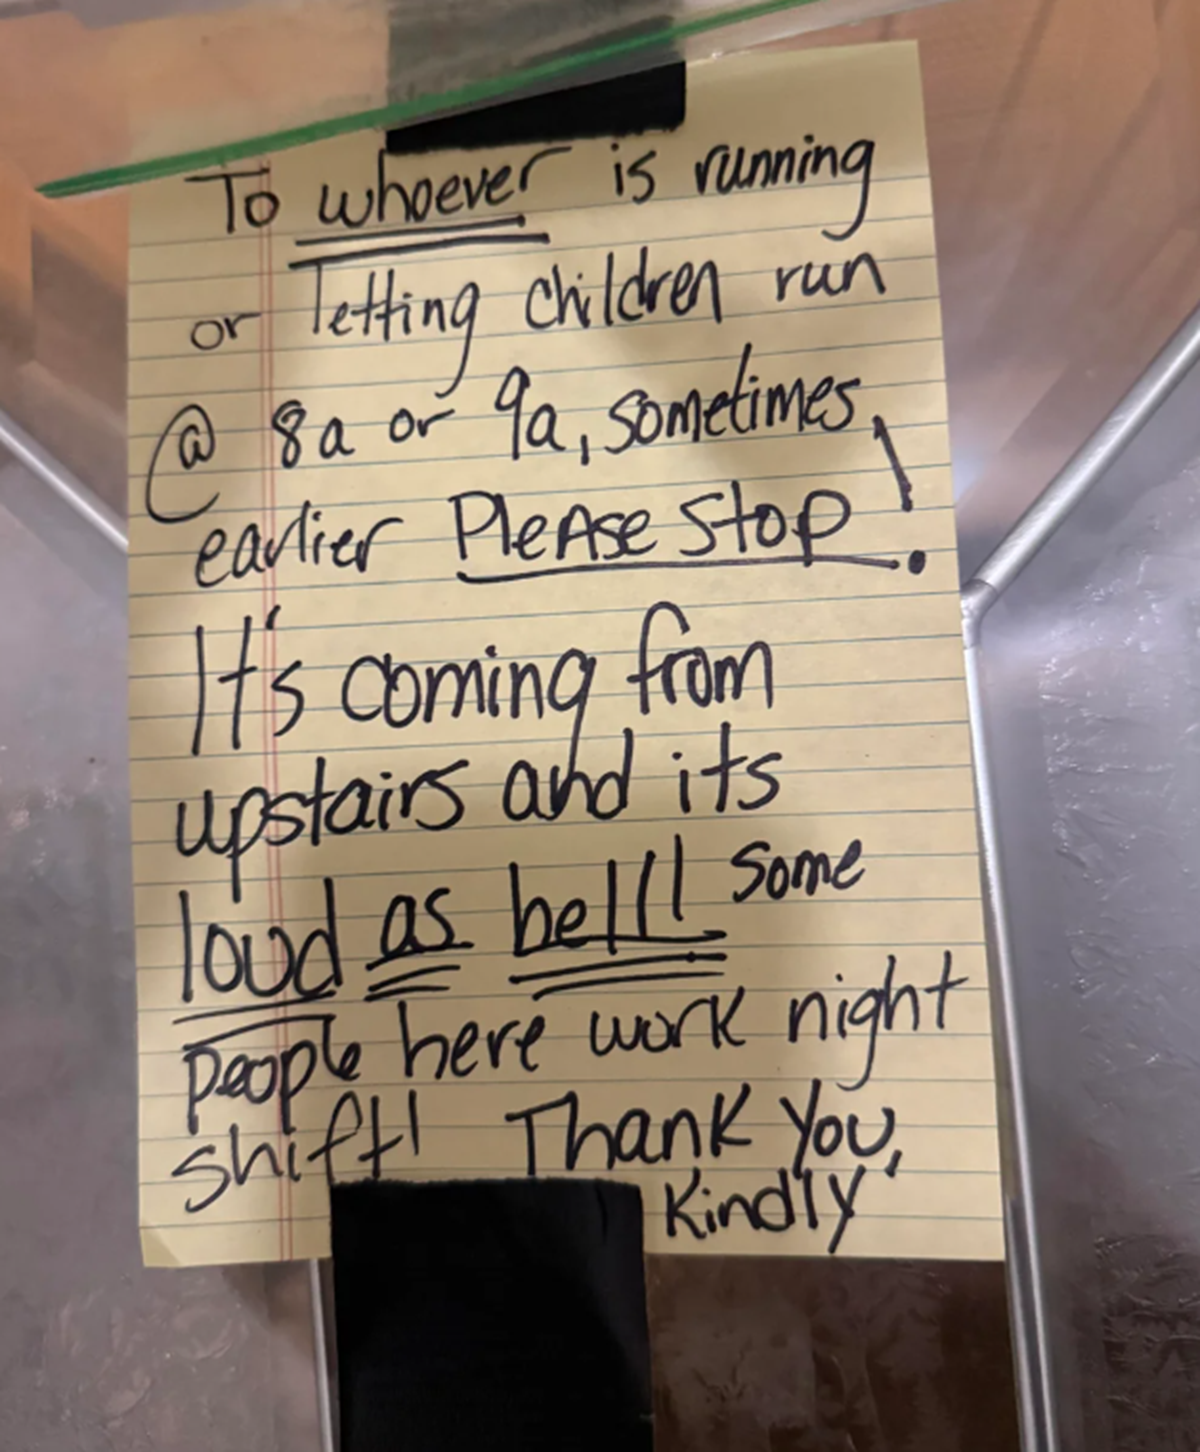 To whoever is running
or letting children run
@ 8a or 9a, sometimes
earlier Please stop!
It's coming from
upstairs and its
loud as hell! some
people here work night
shift! Thank You,
Kindly